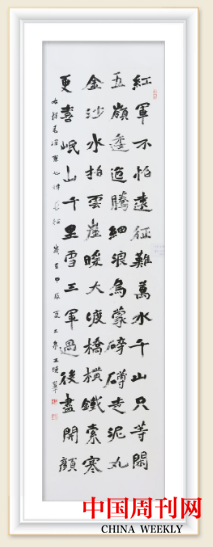 紅軍不怕遠征難萬水千山只等閒
五嶺逶迤騰細浪烏蒙磅礴走泥丸
金沙水拍雲崖暖大渡橋橫鐵索寒
更喜岷山千里雪三軍過後盡開顏
中国周刊网
CHINA WEEKLY